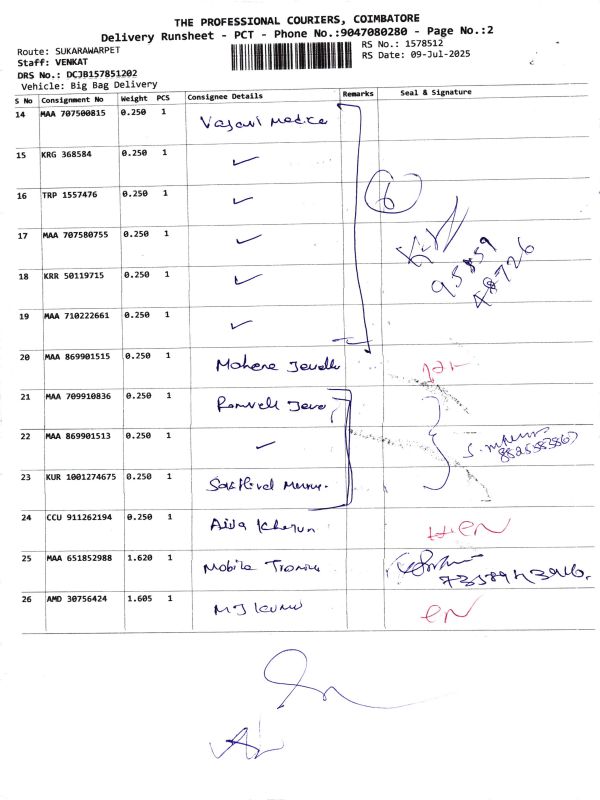 THE PROFESSIONAL COURIERS, COIMBATORE
Delivery Runsheet - PCT - Phone No.:9047080280 - Page No.:2
Route: SUKARAWARPET
RS No.: 1578512
Staff: VENKAT
RS Date: 09-Jul-2025
DRS No.: DCJB157851202
Vehicle: Big Bag Delivery
S No Consignment No Weight PCS Consignee Details Remarks Seal & Signature
14 MAA 707500815 0.250 1 Vasavi Medica
15 KRG 368584 0.250 1 ✓
16 TRP 1557476 0.250 1 ✓
6
17 MAA 707580755 0.250 1 ✓
95859
48726
18 KRR 50119715 0.250 1 ✓
19 MAA 710222661 0.250 1 ✓
20 MAA 869901515 0.250 1
21 MAA 709910836 0.250 1
22 MAA 869901513 0.250 1 ✓
8825583867
23 KUR 1001274675 0.250 1
24 CCU 911262194 0.250 1
25 MAA 651852988 1.620 1 Mobile
26 AMD 30756424 1.605 1 MJ